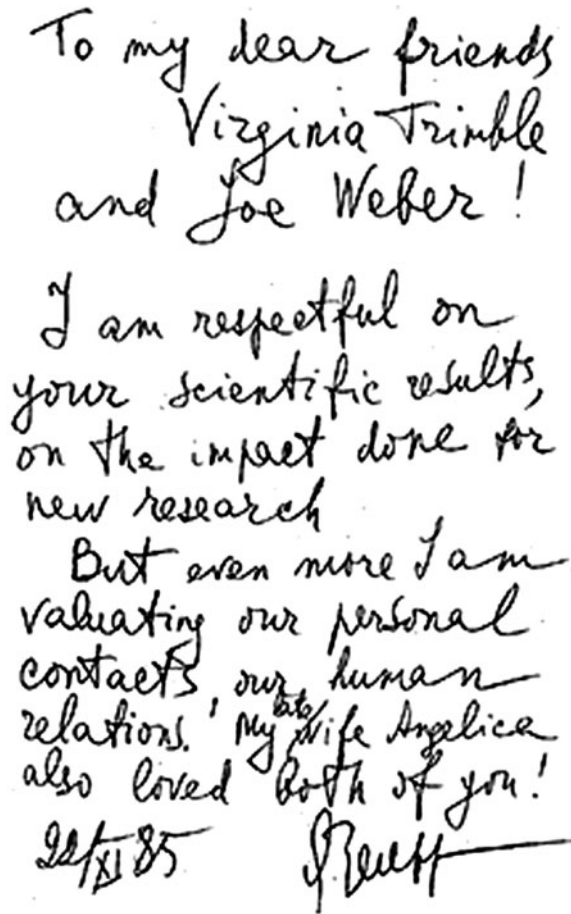 To my dear friends
Virginia Trimble
and Joe Weber!
I am respectful on
your scientific results,
on the impact done for
new research
But even more I am
valuating our personal
contacts, our human
relations. My late wife Angelica
also loved both of you!
22/XI 85